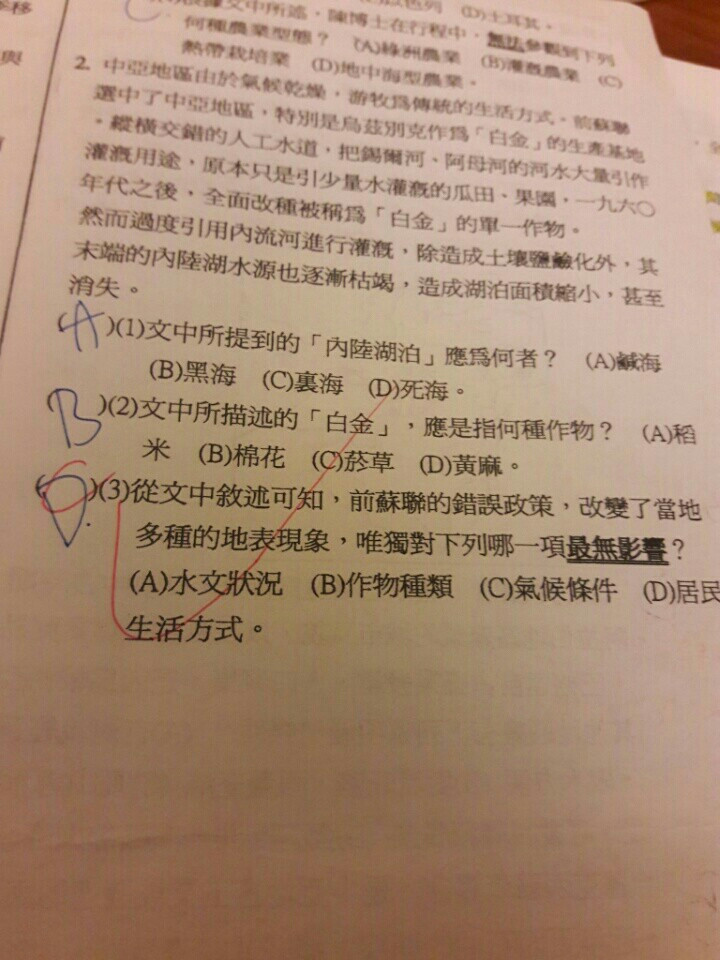 (D)土耳其。
據文中所述，陳博士在行程中，無法參觀到下列
何種農業型態？ (A)綠洲農業 (B)灌溉農業 (C)
熱帶栽培業 (D)地中海型農業。
2. 中亞地區由於氣候乾燥，游牧為傳統的生活方式。前蘇聯
選中了中亞地區，特別是烏茲別克作為「白金」的生產基地
。縱橫交錯的人工水道，把錫爾河、阿母河的河水大量引作
灌溉用途，原本只是引少量水灌溉的瓜田、果園，一九六〇
年代之後，全面改種被稱為「白金」的單一作物。
然而過度引用內流河進行灌溉，除造成土壤鹽鹼化外，其
末端的內陸湖水源也逐漸枯竭，造成湖泊面積縮小，甚至
消失。
(A)(1)文中所提到的「內陸湖泊」應為何者？ (A)鹹海
(B)黑海 (C)裏海 (D)死海。
(B)(2)文中所描述的「白金」，應是指何種作物？ (A)稻
米 (B)棉花 (C)菸草 (D)黃麻。
(D)(3)從文中敘述可知，前蘇聯的錯誤政策，改變了當地
多種的地表現象，唯獨對下列哪一項最無影響？
(A)水文狀況 (B)作物種類 (C)氣候條件 (D)居民
生活方式。